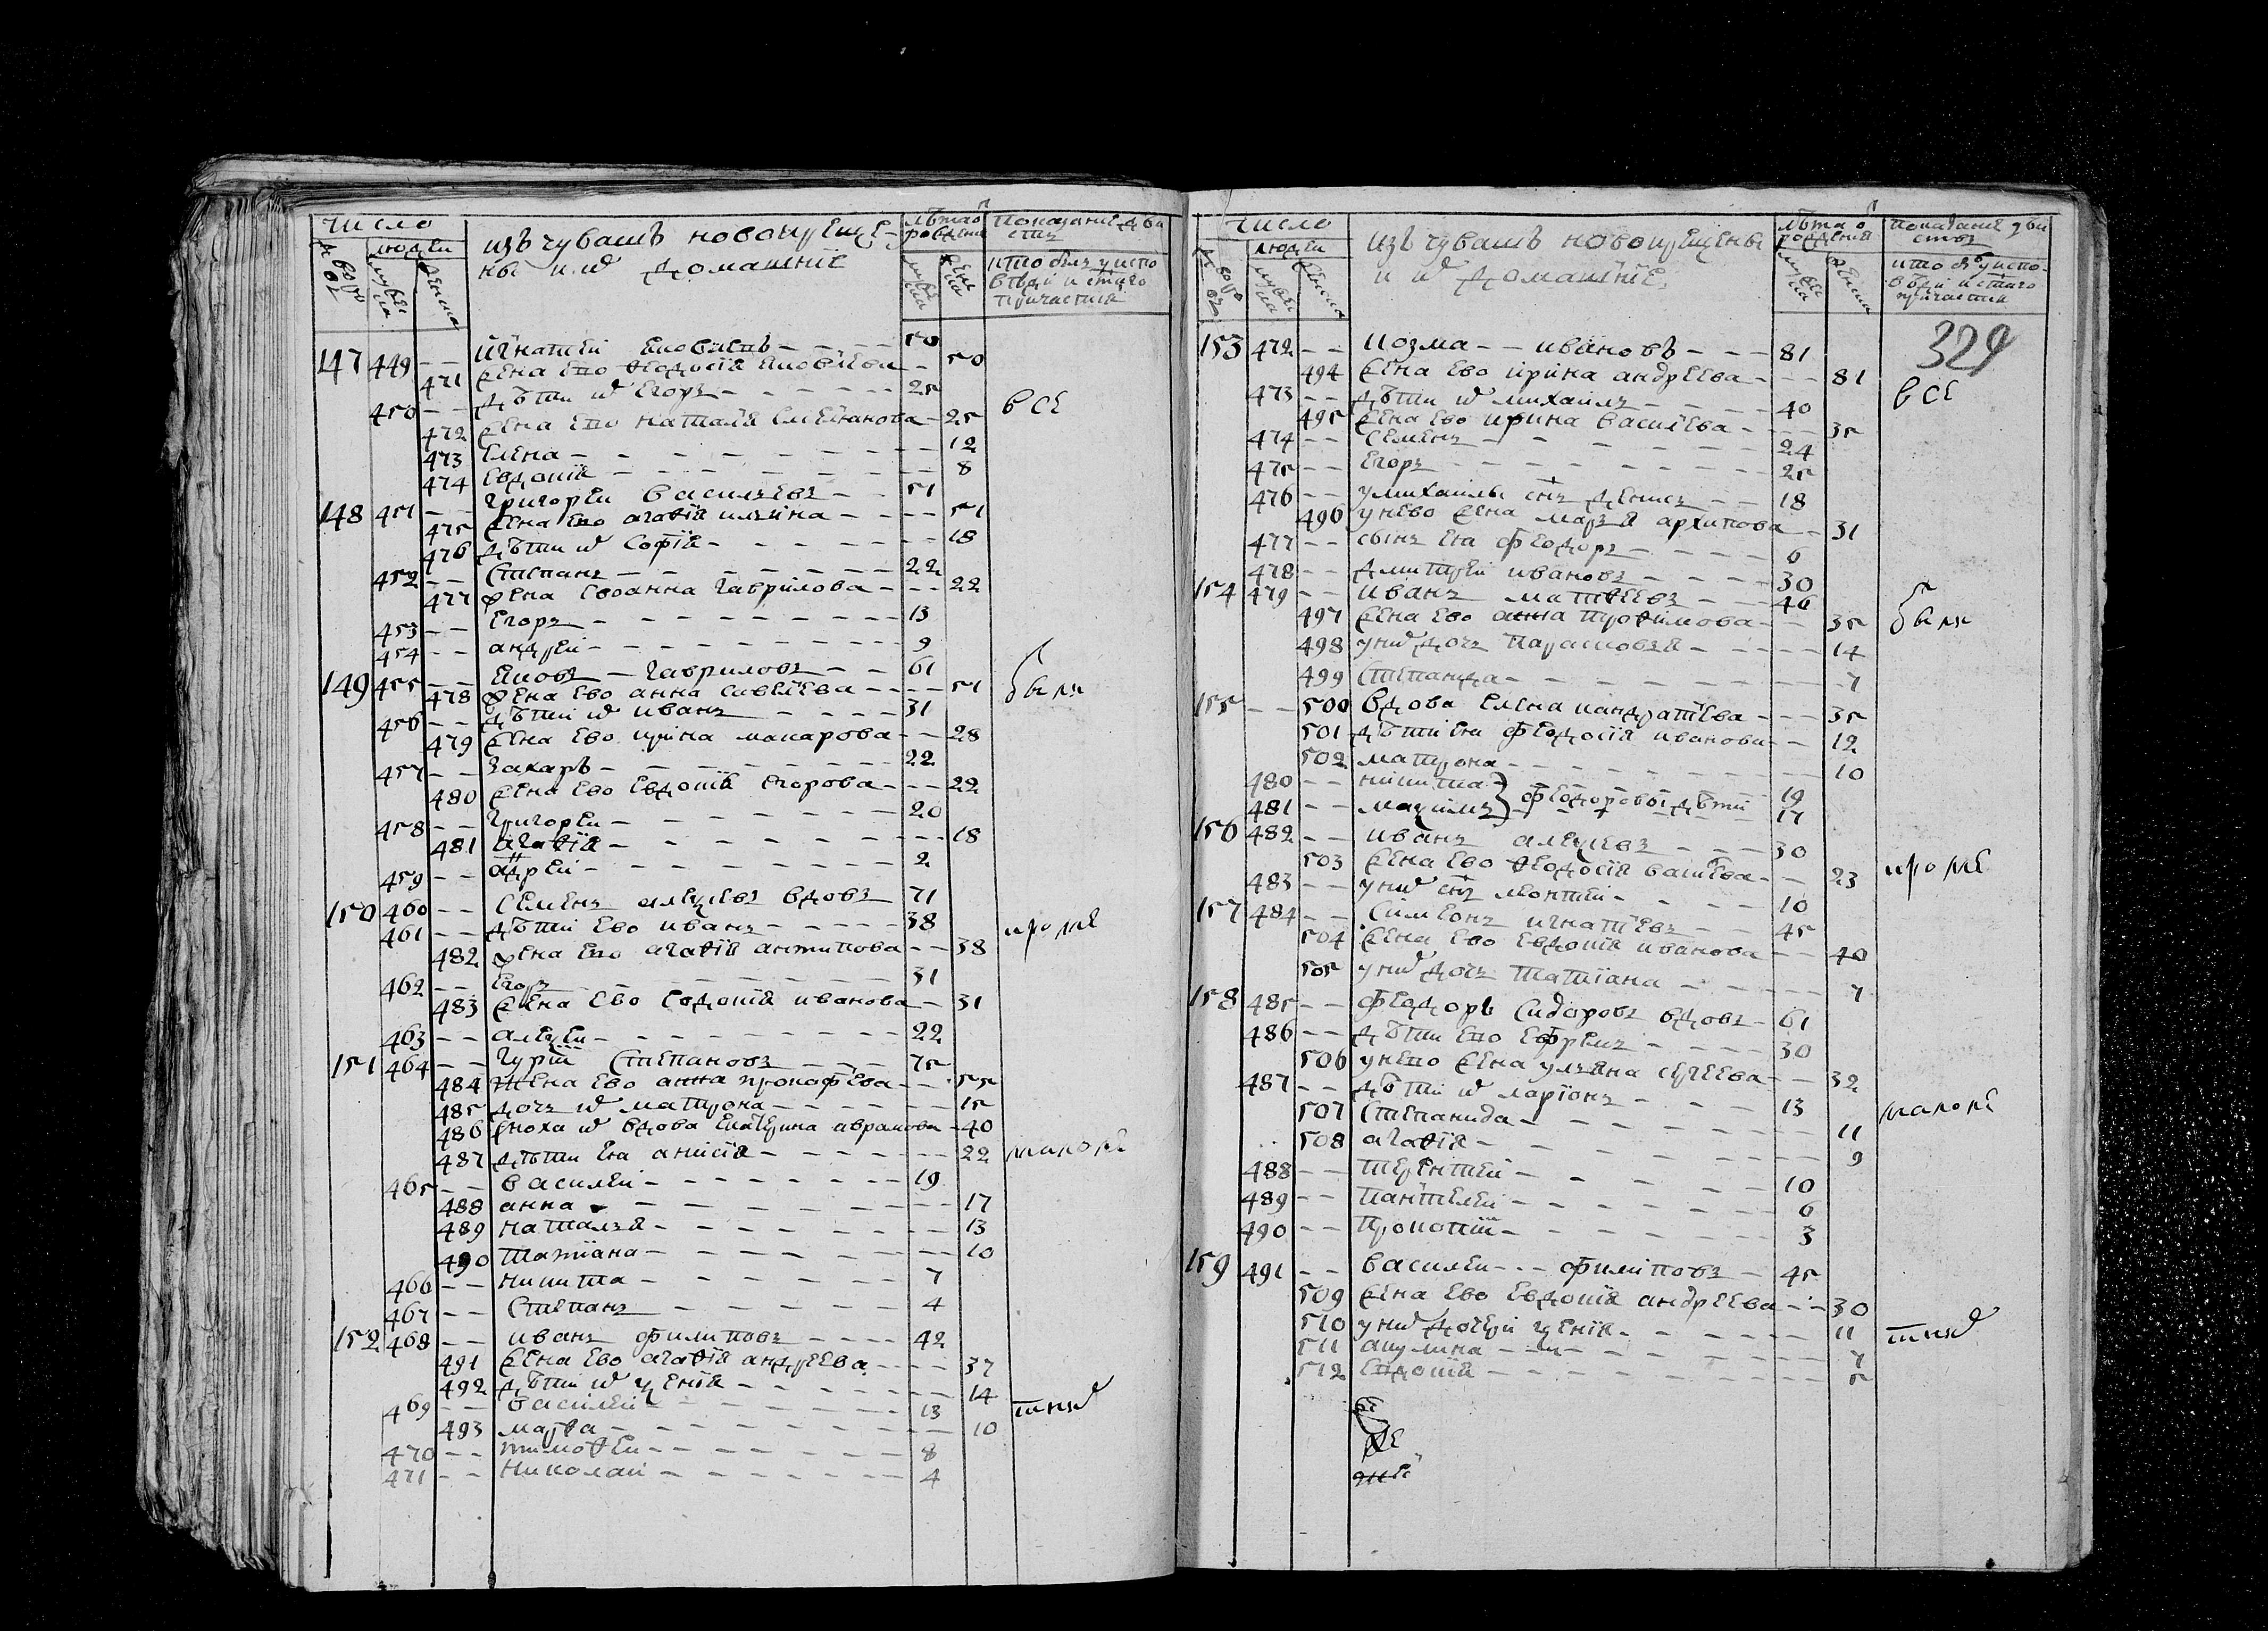 число
людей
изъ чувашъ новокреще-
ны и иⷯ домашніе
лѣта ѿ
рождени
показаніе дѣи
ства
кто былъ у испо
вѣди и стаго
причастия
147 449 -- Игнатей Яковлевъ ---- 50
471 жена ево Ѳедосія Яковлева - 50
450 -- дѣти иⷯ Егоръ ---- 25
472 жена ево Наталя Емельянова - 25
473 Елена ---- 12
474 Евдокія ---- 8
все
148 451 -- Григорей Васильевъ -- 51
475 жена ево Агаѳія Ильина ---- 51
476 дѣти иⷯ Софія ---- 18
452 -- Степанъ ---- 22
477 жена ево Анна Гаврилова --- 22
453 -- Егоръ ---- 13
454 -- Андрей ---- 9
149 455 -- Яковъ - Гавриловъ -- 61
478 жена ево Анна Савелева ---- 51
были
456 -- дѣти иⷯ Иванъ ---- 31
479 жена ево Ирина Макарова -- 28
457 -- Захаръ ---- 22
480 жена ево Евдокія Егорова --- 22
458 -- Григорей ---- 20
481 Агаѳія ---- 18
459 -- Андрей ---- 2
150 460 -- Семенъ Алеѯеевъ вдовъ 71
461 -- дѣти ево Иванъ ---- 38
482 жена ево Агаѳія Антипова -- 38
кроме
462 -- Егоръ ---- 31
483 жена ево Евдокія Иванова - 31
463 -- Алеѯей ---- 22
151 464 -- Гурій Степановъ -- 75
484 Жена ево Анна Прокофева -- 55
485 дочь иⷯ Матрона ---- 15
486 сноха иⷯ вдова Екатерина Аврамова - 40
487 дѣти ея Анисія ---- 22
такоже
465 -- Василей ---- 19
488 Анна ---- 17
489 Наталья ---- 13
490 Татіана ---- 10
466 -- Никита ---- 7
467 -- Степанъ ---- 4
152 468 -- Иванъ Филиповъ ---- 42
491 жена ево Агаѳія Андреева ---- 37
492 дѣти иⷯ Ѯения ---- 14
469 -- Василей ---- 13
493 Марѳа ---- 10
470 -- Тимоѳей ---- 8
471 -- Николай ---- 4
число
людей
изъ чувашъ новокрещены
и иⷯ домашніе
лѣта ѿ
рожденія
показаніе дѣи
ства
кто был у испо-
вѣди и стаго
причастия
329
153 472 -- Козма -- Ивановъ --- 81
494 жена ево Ирина Андреева --- 81
473 -- дѣти иⷯ Михаилъ ---- 40
все
495 жена ево Ирина Василева ---- 35
474 -- Семенъ ---- 24
475 -- Егоръ ---- 25
476 -- у михаилы снъ Денисъ -- 18
496 у нево жена Марья Архипова - 31
477 -- сынъ ея Феодоръ ---- 6
478 -- Дмитрей Ивановъ ---- 30
154 479 -- Иванъ Матвеевъ -- 46
497 жена ево Анна Трофимова -- 35
были
498 у ниⷯ дочь Парасковья ---- 14
499 Степанида ---- 7
155 -- 500 вдова Елена Кандратева --- 35
501 дѣти ея Феодосія Иванова -- 12
502 Матрона ---- 10
480 -- Никита } феодоровы дѣти 19
481 -- Маѯимъ 17
156 482 -- Иванъ Алеѯеевъ --- 30
503 жена ево Ѳеодосія Васиева -- 23
кроме
483 -- у ниⷯ снъ Леонтей ---- 10
157 484 -- Симеонъ Игнатіевъ -- 45
504 жена ево Евдокія Иванова -- 40
505 у ниⷯ дочь Татіана ---- 7
158 485 -- Феадоръ Сидоровъ вдовъ - 61
486 -- дѣти ево Ефремъ ---- 30
506 у нево жена Ульяна Сергеева -- 32
487 -- дѣти иⷯ Ларіонъ --- 13
такоже
507 Степанида ---- 11
508 Агаѳія ---- 9
488 -- Терентей ---- 10
489 -- Пантелей ---- 6
490 -- Прокопій ---- 3
159 491 -- Василей --- Филіповъ - 45
509 жена ево Евдокія Андреева -- 30
510 у ниⷯ дочери Ѯения ---- 11
511 Акулина ---- 7
512 Евдокія ---- 5